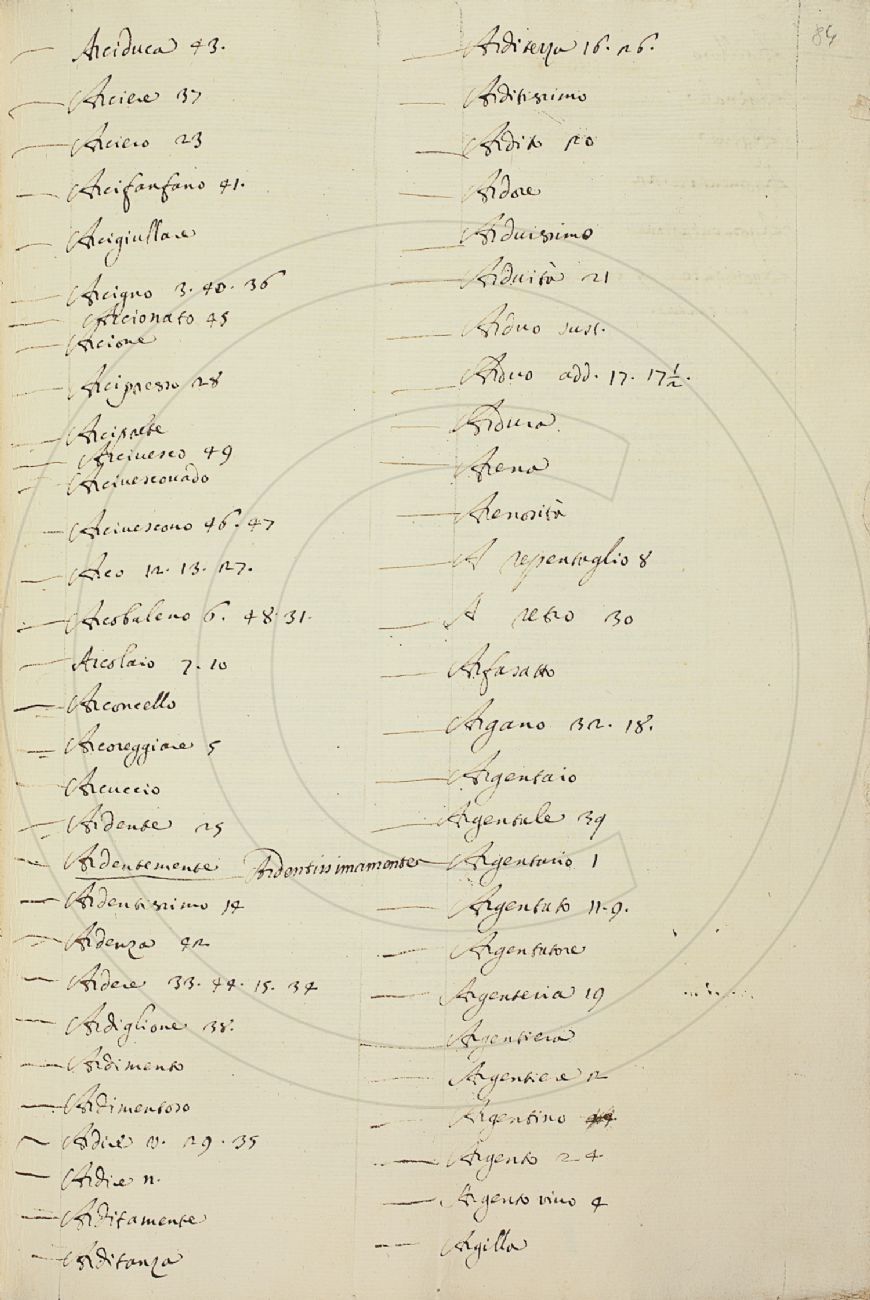 84
Arciduca 43.
Arciere 37
Arciero 23
Arcifanfano 41.
Arcigiullare
Arcigno 3. 40. 36
Arcionato 45
Arcione
Arcipresso 28
Arciprete
Arciuesco 49
Arciuesconado
Arciuescouo 46. 47
Arco 12. 13. 27.
Arcobaleno 6. 48. 31.
Arcolaio 7. 10
Arconcello
Arcoreggiare 5
Arcuccio
Ardente 25
Ardentemente Ardentissimamente
Ardentissimo 14
Ardenza 42
Ardere 33. 44. 15. 34
Ardiglione 38.
Ardimento
Ardimentoso
Ardire v. 29. 35
Ardire n.
Arditamente
Arditanza
Arditezza 16. 26.
Arditissimo
Ardito 20
Ardore
Arduissimo
Arduità 21
Arduo sust.
Arduo add. 17. 17½.
Ardura
Arena
Arenosità
A repentaglio 8
A retro 30
Arfasatto
Argano 32. 18.
Argentaio
Argentale 39
Argentario 1
Argentato 11. 9.
Argentatore
Argenteria 19
Argentiera
Argentiere 2
Argentino
Argento 24
Argento vivo 4
Argilla